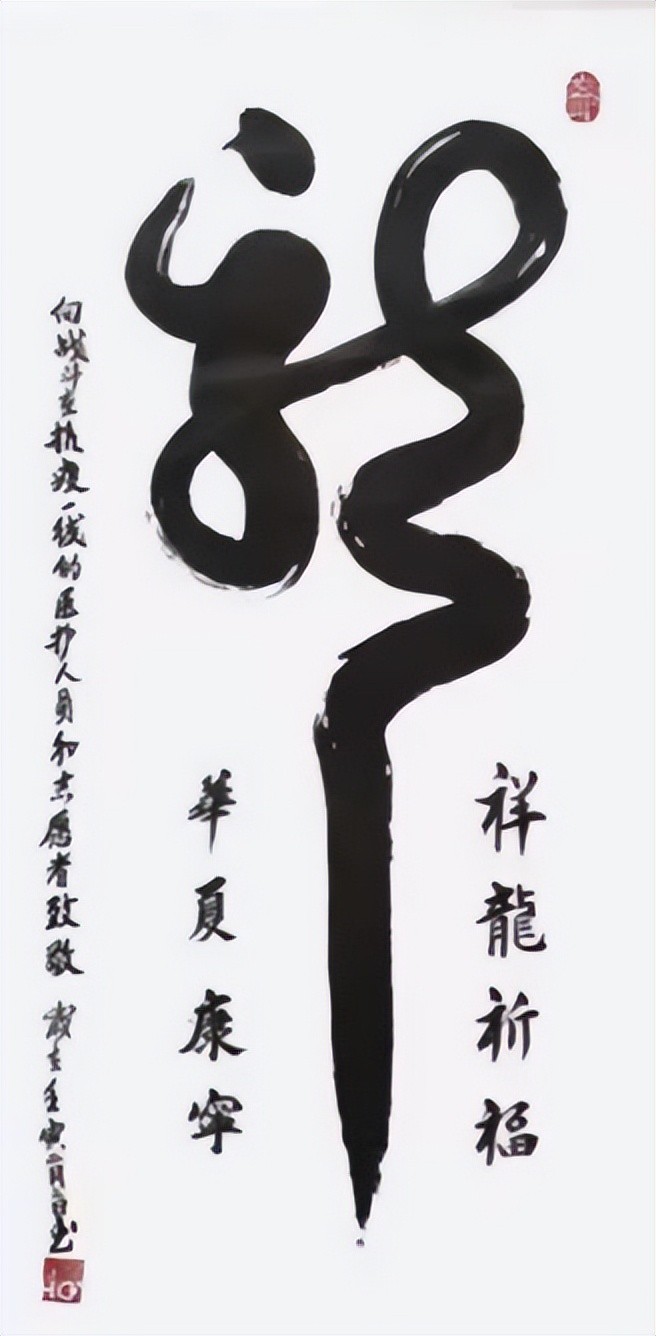 龍
祥龍祈福
華夏康寧
向战斗在抗疫一线的医护人员和志愿者致敬
歲在壬寅二月 书